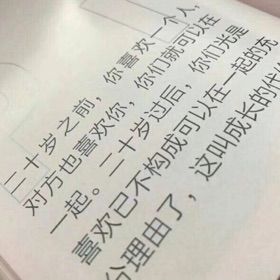 二十岁之前，你喜欢一个人，
对方也喜欢你，你们就可以在
一起。二十岁过后，你们光是
喜欢已不构成可以在一起的充
分理由了，这叫成长的代